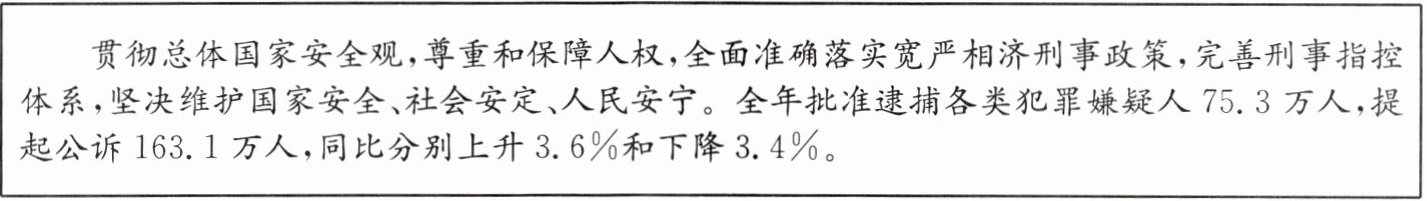 贯彻总体国家安全观,尊重和保障人权,全面准确落实宽严相济刑事政策,完善刑事指控
体系,坚决维护国家安全、社会安定、人民安宁。全年批准逮捕各类犯罪嫌疑人 75.3 万人,提
起公诉 163.1 万人,同比分别上升 3.6%和下降 3.4%。